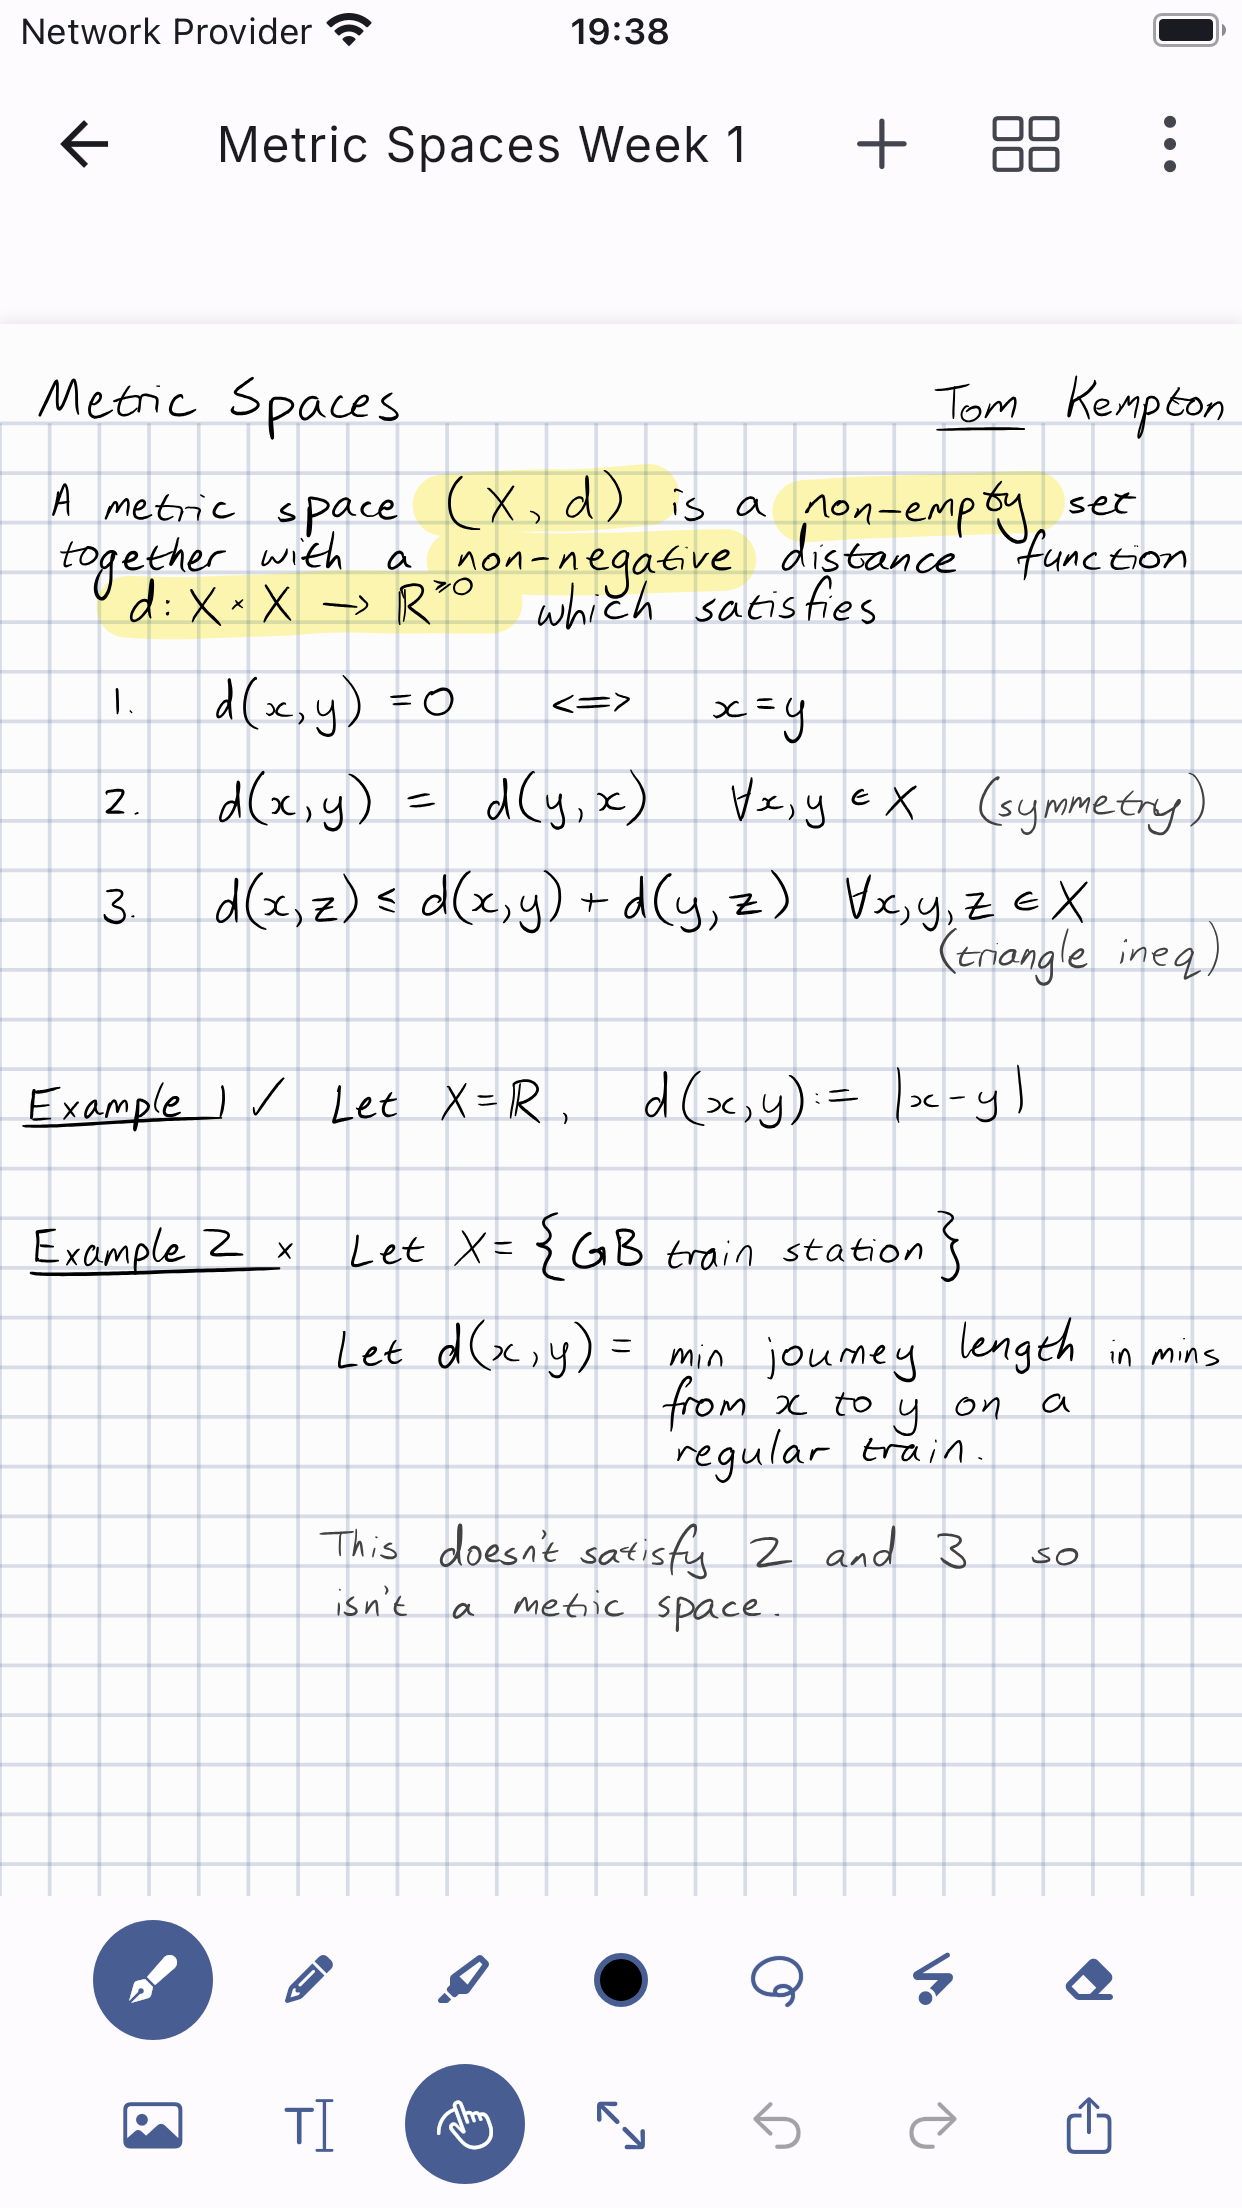 Network Provider 19:38
Metric Spaces Week 1
Metric Spaces Tom Kempton
A metric space (X, d) is a non-empty set
together with a non-negative distance function
d: X × X → ℝ^≥0 which satisfies
1. d(x,y) = 0 <=> x = y
2. d(x,y) = d(y,x) ∀x,y ∈ X (symmetry)
3. d(x,z) ≤ d(x,y) + d(y,z) ∀x,y,z ∈ X
(triangle ineq)
Example 1 ✓ Let X = ℝ, d(x,y) := |x - y|
Example 2 × Let X = {GB train station}
Let d(x,y) = min journey length in mins
from x to y on a
regular train.
This doesn't satisfy 2 and 3 so
isn't a metric space.
T